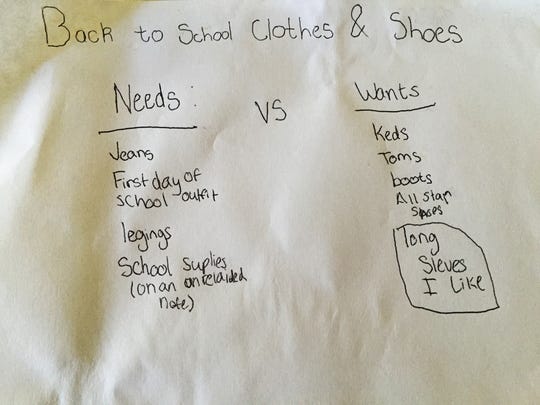 Back to School Clothes & Shoes
Needs :
Jeans
First day of
school outfit
legings
School suplies
(on an unrelaided
note)
VS
Wants
Keds
Toms
boots
All star
long
Sleves
I like